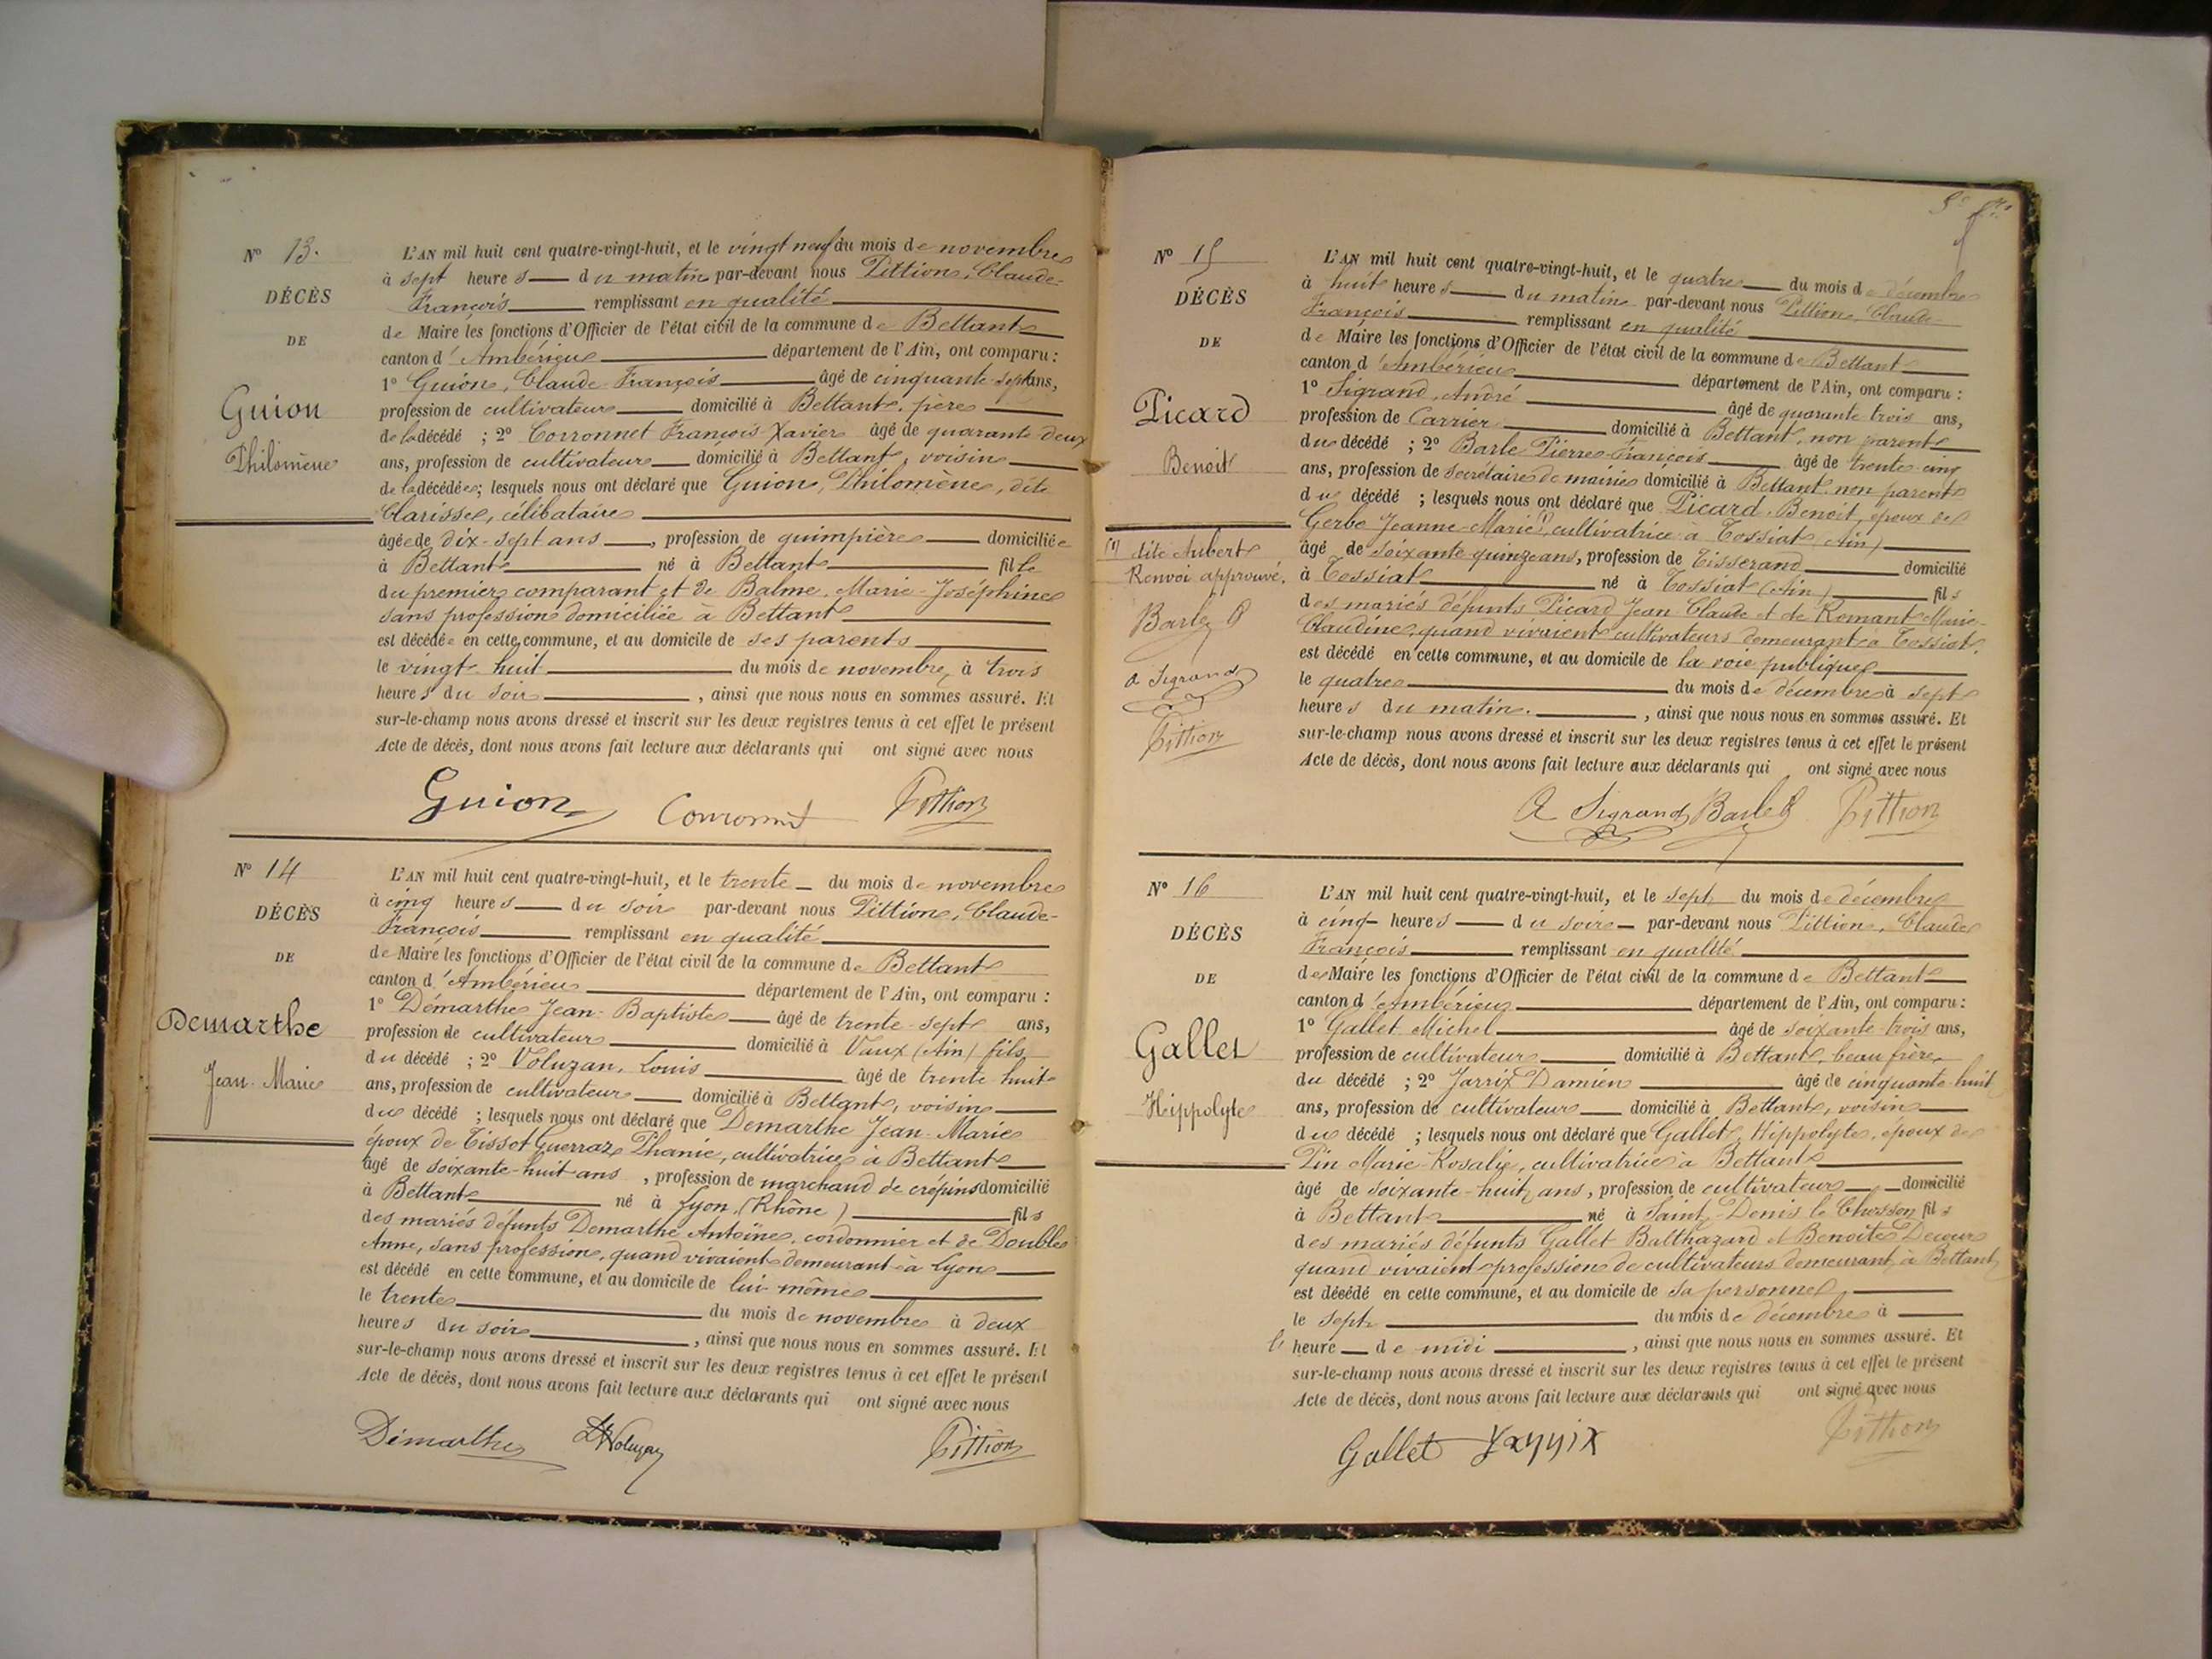 Nº 13.
DÉCÈS
DE
Guion
Philomène
L'AN mil huit cent quatre-vingt-huit, et le vingt neuf du mois de novembre
à sept heures du matin par-devant nous Pittion, Claude-
François remplissant en qualité
de Maire les fonctions d'Officier de l'état civil de la commune de Bettant
canton d'Ambérieu département de l'Ain, ont comparu :
1º Guion, Claude François âgé de cinquante-sept ans,
profession de cultivateur domicilié à Bettant, père
de la décédé ; 2º Corronnet François Xavier âgé de quarante deux
ans, profession de cultivateur domicilié à Bettant, voisin
de la décédée ; lesquels nous ont déclaré que Guion, Philomène, dite
Clarisse, célibataire
âgée de dix-sept ans, profession de guimpière domiciliée
à Bettant né à Bettant fille
du premier comparant et de Balme, Marie-Joséphine
sans profession domiciliée à Bettant
est décédée en cette commune, et au domicile de ses parents
le vingt-huit du mois de novembre, à trois
heures du soir, ainsi que nous nous en sommes assuré. Et
sur-le-champ nous avons dressé et inscrit sur les deux registres tenus à cet effet le présent
Acte de décès, dont nous avons fait lecture aux déclarants qui ont signé avec nous
Guion Pittion
Nº 14
DÉCÈS
DE
Demarthe
Jean-Marie
L'AN mil huit cent quatre-vingt-huit, et le trente du mois de novembre
à cinq heures du soir par-devant nous Pittion, Claude-
François remplissant en qualité
de Maire les fonctions d'Officier de l'état civil de la commune de Bettant
canton d'Ambérieu département de l'Ain, ont comparu :
1º Démarthe Jean-Baptiste âgé de trente-sept ans,
profession de cultivateur domicilié à Vaux (Ain) fils
du décédé ; 2º Voluzan, Louis âgé de trente huit
ans, profession de cultivateur domicilié à Bettant, voisin
du décédé ; lesquels nous ont déclaré que Demarthe Jean-Marie
époux de Tissot Guerraz Phanie, cultivatrice à Bettant
âgé de soixante-huit ans, profession de marchand de crépins domicilié
à Bettant né à Lyon (Rhône) fils
des mariés défunts Demarthe Antoine, cordonnier et de Double
Anne, sans profession, quand vivaient demeurant à Lyon
est décédé en cette commune, et au domicile de lui-même
le trente du mois de novembre à deux
heures du soir, ainsi que nous nous en sommes assuré. Et
sur-le-champ nous avons dressé et inscrit sur les deux registres tenus à cet effet le présent
Acte de décès, dont nous avons fait lecture aux déclarants qui ont signé avec nous
Démarthe Voluzan Pittion
Nº 15
DÉCÈS
DE
Picard
Benoit
(1) dite Aubert
Renvoi approuvé.
Barle P
A Sigrand
Pittion
L'AN mil huit cent quatre-vingt-huit, et le quatre du mois de décembre
à huit heures du matin par-devant nous Pittion, Claude-
François remplissant en qualité
de Maire les fonctions d'Officier de l'état civil de la commune de Bettant
canton d'Ambérieu département de l'Ain, ont comparu :
1º Sigrand, André âgé de quarante trois ans,
profession de Carrier domicilié à Bettant, non parent
du décédé ; 2º Barle Pierre-François âgé de trente-cinq
ans, profession de secrétaire de mairie domicilié à Bettant, non parent
du décédé ; lesquels nous ont déclaré que Picard, Benoit, époux de
Gerbe Jeanne-Marie (1), cultivatrice à Tossiat (Ain)
âgé de soixante quinze ans, profession de Tisserand domicilié
à Tossiat né à Tossiat (Ain) fils
des mariés défunts Picard Jean-Claude et de Romant Marie-
Claudine, quand vivaient cultivateurs demeurant à Tossiat,
est décédé en cette commune, et au domicile de la voie publique
le quatre du mois de décembre à sept
heures du matin, ainsi que nous nous en sommes assuré. Et
sur-le-champ nous avons dressé et inscrit sur les deux registres tenus à cet effet le présent
Acte de décès, dont nous avons fait lecture aux déclarants qui ont signé avec nous
A Sigrand Barle P Pittion
Nº 16
DÉCÈS
DE
Gallet
Hippolyte
L'AN mil huit cent quatre-vingt-huit, et le sept du mois de décembre
à cinq heures du soir par-devant nous Pittion, Claude
François remplissant en qualité
de Maire les fonctions d'Officier de l'état civil de la commune de Bettant
canton d'Ambérieu département de l'Ain, ont comparu :
1º Gallet Michel âgé de soixante-trois ans,
profession de cultivateur domicilié à Bettant, beau frère
du décédé ; 2º Jarrix Damien âgé de cinquante-huit
ans, profession de cultivateur domicilié à Bettant, voisin
du décédé ; lesquels nous ont déclaré que Gallet, Hippolyte, époux de
Pin Marie-Rosalie, cultivatrice à Bettant
âgé de soixante-huit ans, profession de cultivateur domicilié
à Bettant né à Saint-Denis le Chosson fils
des mariés défunts Gallet Balthazard et Benoîte Decour
quand vivaient profession de cultivateurs demeurant à Bettant
est décédé en cette commune, et au domicile de sa personne,
le sept du mois de décembre à
l' heure de midi, ainsi que nous nous en sommes assuré. Et
sur-le-champ nous avons dressé et inscrit sur les deux registres tenus à cet effet le présent
Acte de décès, dont nous avons fait lecture aux déclarants qui ont signé avec nous
Gallet Jarrix Pittion